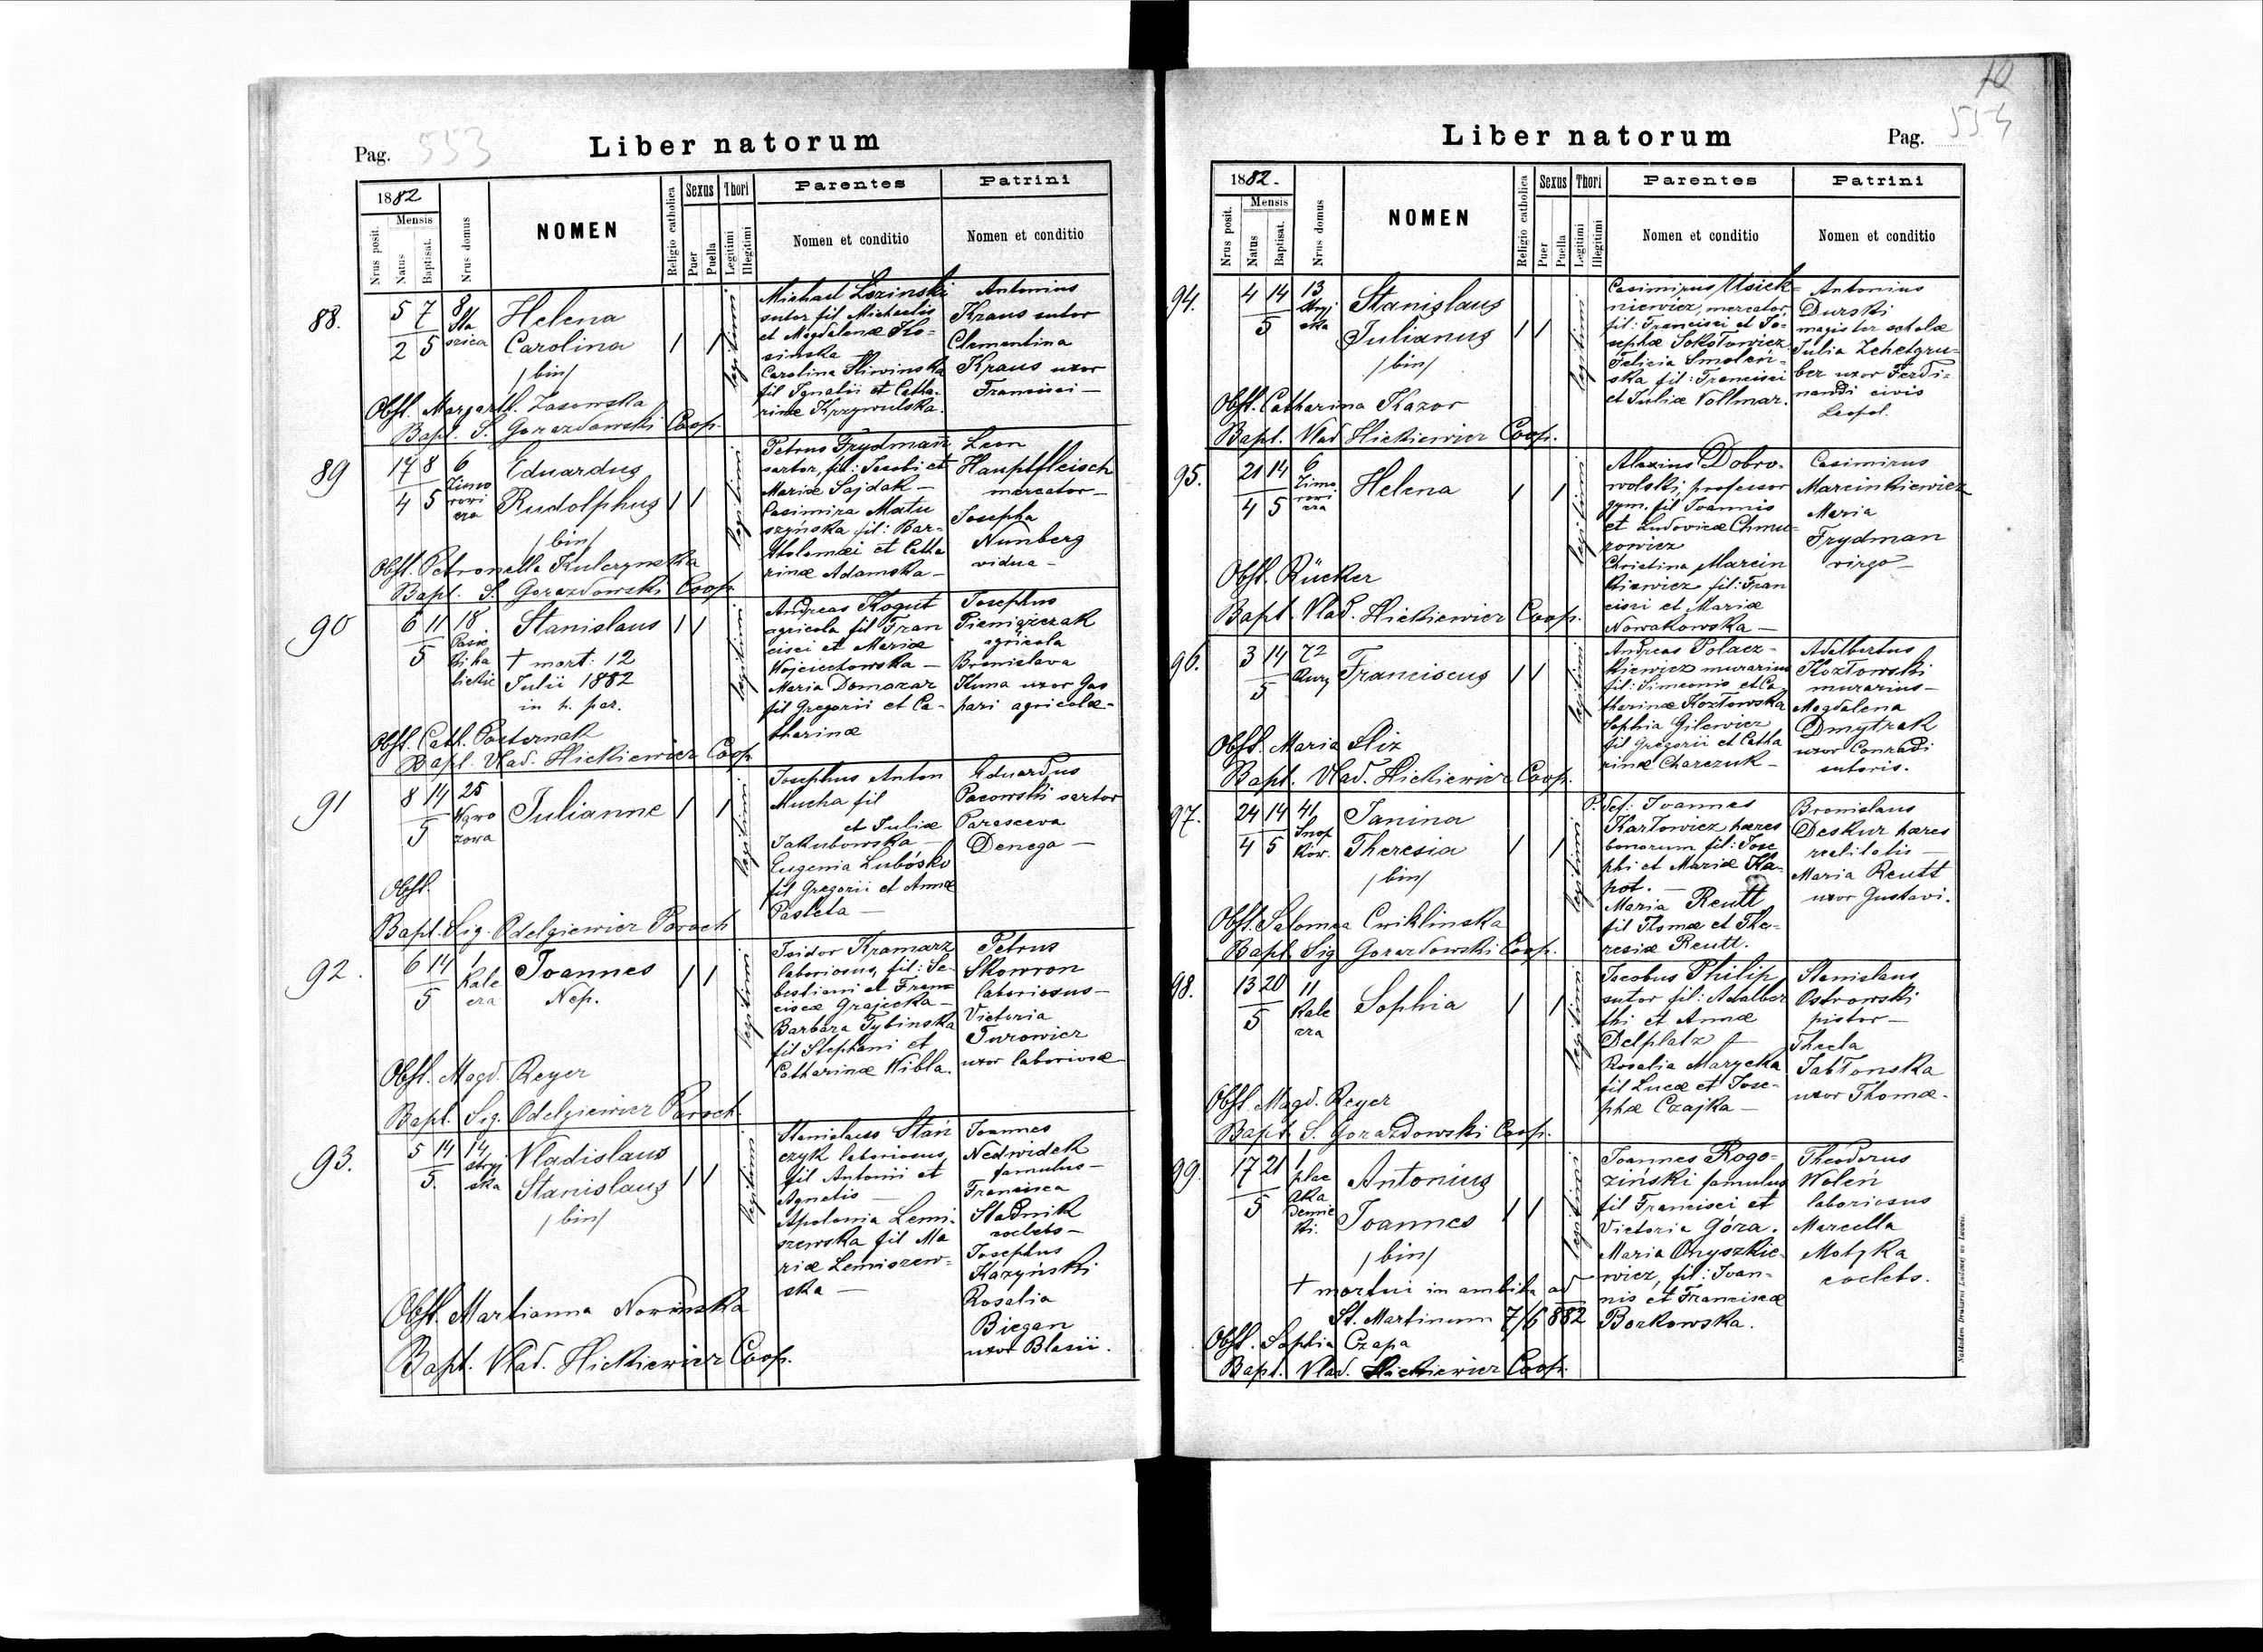 Pag. 553
Liber natorum
1882
Mensis
Nrus posit.
Natus
Baptisat.
Nrus domus
NOMEN
Religio catholica
Sexus
Puer
Puella
Thori
Legitimi
Illegitimi
Parentes
Nomen et conditio
Patrini
Nomen et conditio
88.
5 7
2 5
8
Helena
Carolina
/bin/
legitimi
Michael Łozinski
sutor fil Michaelis
et Magdalenæ Ko-
sinska —
Carolina Sliwinska
fil Ignatii et Catha-
rinæ Krzywulska.
Antonius
Kraus sutor
Clementina
Kraus uxor
Francisci —
Obst. Margarth. Zasowska
Bapt. S. Gorazdowski Coop.
89
17 8
4 5
6
Zimo
rowi
cza
Eduardus
Rudolphus
/bin/
legitimi
Petrus Frydmann
sartor, fil: Jacobi et
Mariæ Sajdak —
Casimira Matu
szyńska fil: Bar-
tholomæi et Catha
rinæ Adamska —
Leon
Hauptfleisch
mercator —
Josepha
Nunberg
vidua —
Obst. Petronella Kulczynska
Bapt. S. Gorazdowski Coop.
90
6 11
5
18
Stanislaus
† mort: 12
Julii 1882
in h. par.
legitimi
Andreas Kogut
agricola fil Fran
cisci et Mariæ
Wojciechowska —
Maria Domazar
fil Gregorii et Ca-
tharinæ
Josephus
Pieniążczak
agricola
Bronislava
Kuna uxor Gas
pari agricolæ -
Obst. Cath. Pasternak
Bapt. Vlad. Hickiewicz Coop.
91
8 14
5
25
Julianne
legitimi
Josephus Anton
Mucha fil
et Juliæ
Jakubowska —
Eugenia
fil Gregorii et Annæ
Pasleta —
Eduardus
Pacowski sartor
Parasceva
Denega —
Obst.
Bapt. Sig. Odelgiewicz Paroch
92.
6 14
5
1
Kale
cza
Joannes
Nep.
legitimi
Isidor Kramarz
laboriosus, fil: Se-
bastiani et Fran-
ciscæ Grajecka —
Barbara Tybinska
fil Stephani et
Catharinæ Wibla.
Petrus
Skowron
laboriosus —
Victoria
Turowicz
uxor laboriosæ
Obst. Magd. Reyer
Bapt. Sig. Odelgiewicz Paroch.
93.
5 14
5.
14
stryj
ska
Vladislaus
Stanislaus
/bin/
legitimi
Stanislaus Stań
czyk laboriosus,
fil Antonii et
Agnetis —
Apolonia Lemi-
szewska fil Ma
riæ Lemiszew-
ska —
Joannes
Nedwidek
famulus —
Francisca
Stadnik
coelebs —
Josephus
Kazyński
Rosalia
Biegan
uxor Blasii.
Obst. Martianna Novinska
Bapt. Vlad. Hickiewicz Coop.
10
554
Liber natorum
Pag.
1882.
Mensis
Nrus posit.
Natus
Baptisat.
Nrus domus
NOMEN
Religio catholica
Sexus
Puer
Puella
Thori
Legitimi
Illegitimi
Parentes
Nomen et conditio
Patrini
Nomen et conditio
94.
4 14
5
13
Stryj
ska
Stanislaus
Julianus
/bin/
legitimi
Casimirus
niewicz, mercator,
fil: Francisci et Jo-
sephæ Sokołowicz
Felicia Smoleń-
ska fil: Francisci
et Juliæ Vollmar.
Antonius
Durski
magister scholæ
Julia Zehetgru-
ber uxor Ferdi-
nandi civis
Leopol.
Obst. Catharina Kazor
Bapt. Vlad Hickiewicz Coop.
95.
21 14
4 5
6
Zimo
rowi
cza
Helena
legitimi
Alexius Dobro-
wolski, professor
gym. fil Joannis
et Ludovicæ Chmu-
rowicz
Christina Marcin
kiewicz fil: Fran
cisci et Mariæ
Nowakowska —
Casimirus
Marcinkiewicz
Maria
Frydman
virgo —
Obst. Rücker
Bapt. Vlad. Hickiewicz Coop.
96.
3 14
5
72
Franciscus
legitimi
Andreas Polacz-
kiewicz murarius
fil: Simeonis et Ca-
tharinæ Kozłowska
Sophia Gilewicz
fil Gregorii et Catha
rinæ Charczuk —
Adalbertus
Kozłowski
murarius —
Magdalena
Dmytrak
uxor Conradi
sutoris.
Obst. Maria Sliz
Bapt. Vlad. Hickiewicz Coop.
97.
24 14
4 5
41
Snop
kow.
Janina
Theresia
/bin/
legitimi
P. Def: Joannes
Karłowicz hæres
bonorum fil: Jose
phi et Mariæ Ka-
pot. —
Maria Reutt
fil Thomæ et The-
resiæ Reutt.
Bronislaus
Deskur hæres
realitatis —
Maria Reutt
uxor Gustavi.
Obst. Salomea Cwiklinska
Bapt Sig Gorazdowski Coop.
98.
13 20
5
11
Kale
cza
Sophia
legitimi
Jacobus Philip
sutor fil: Adalber
thi et Annæ
Delplatz —
Rosalia Marycka
fil Lucæ et Jose-
phæ Czajka —
Stanislaus
Ostrowski
pistor —
Thecla
Jabłonska
uxor Thomæ -
Obst. Magd. Reyer
Bapt. S. Gorazdowski Coop.
99.
17 21
5
1
plac
Aka
demic
ki.
Antonius
Joannes
/bin/
† mortui in ambitu ad
St. Martinum 7/6 882
legitimi
Joannes Rogo-
ziński famulus
fil Francisci et
Victoria Góra.
Maria Onyszkie-
wicz, fil: Joan-
nis et Franciscæ
Borkowska.
Theodorus
Woleń
laboriosus
Marcella
Motyka
coelebs.
Obst. Sophia Czapa
Bapt. Vlad. Hickiewicz Coop.